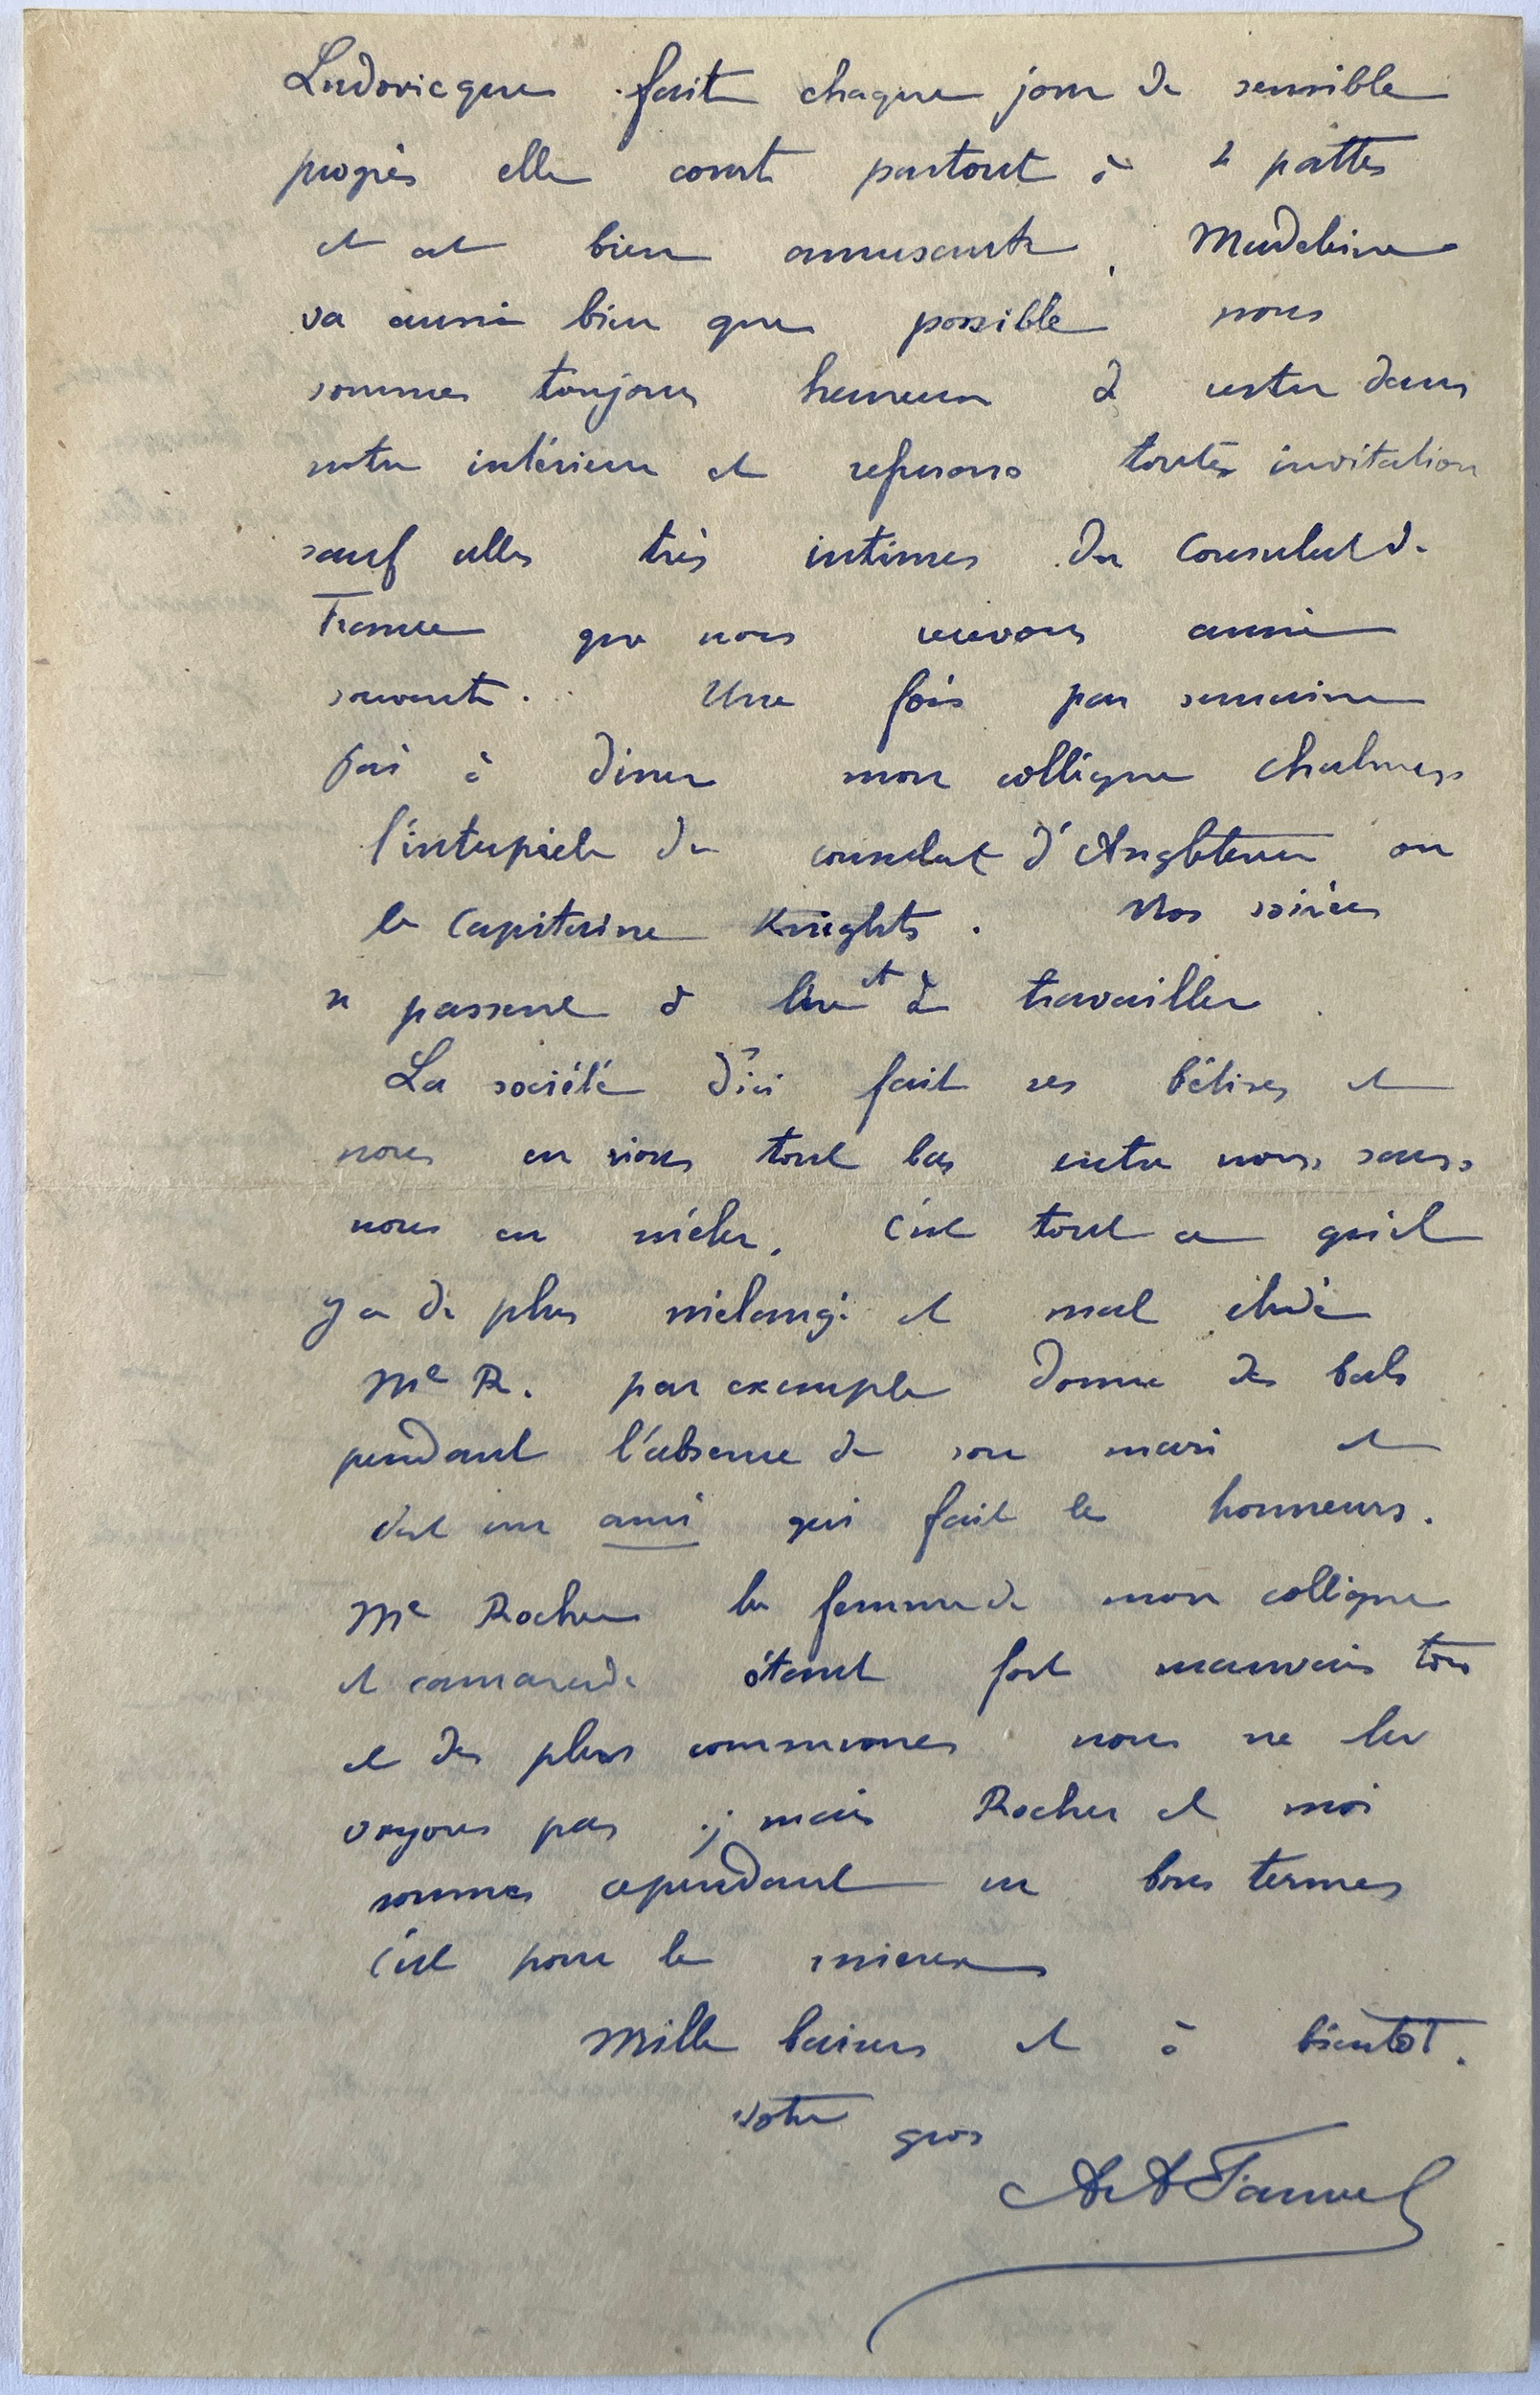 Ludovicque fait chaque jour de sensible
progrès elle court partout à 4 pattes
et est bien amusante. Madeleine
va aussi bien que possible nous
sommes toujours heureux de rester dans
notre intérieur et refusons toutes invitation
sauf celles très intimes du Consulat de
France que nous recevons aussi
souvent. Une fois par semaine
j'ai à diner mon collègue Chalmers
l'interprète du consulat d'Angleterre ou
le Capitaine Knights. Nos soirées
se passent à lire et à travailler.
La société d'ici fait ses bêtises et
nous en rions tout bas entre nous, sans
nous en mêler. C'est tout ce qu'il
y a de plus mélangé et mal élevé
Me R. par exemple donne des bals
pendant l'absence de son mari et
c'est un ami qui fait les honneurs.
Me Rocher la femme de mon collègue
et camarade étant fort mauvais ton
et des plus communes nous ne la
voyons pas ; mais Rocher et moi
sommes cependant en bons termes
c'est pour le mieux
Mille baisers et à bientôt.
Votre gros
AA Fauvel